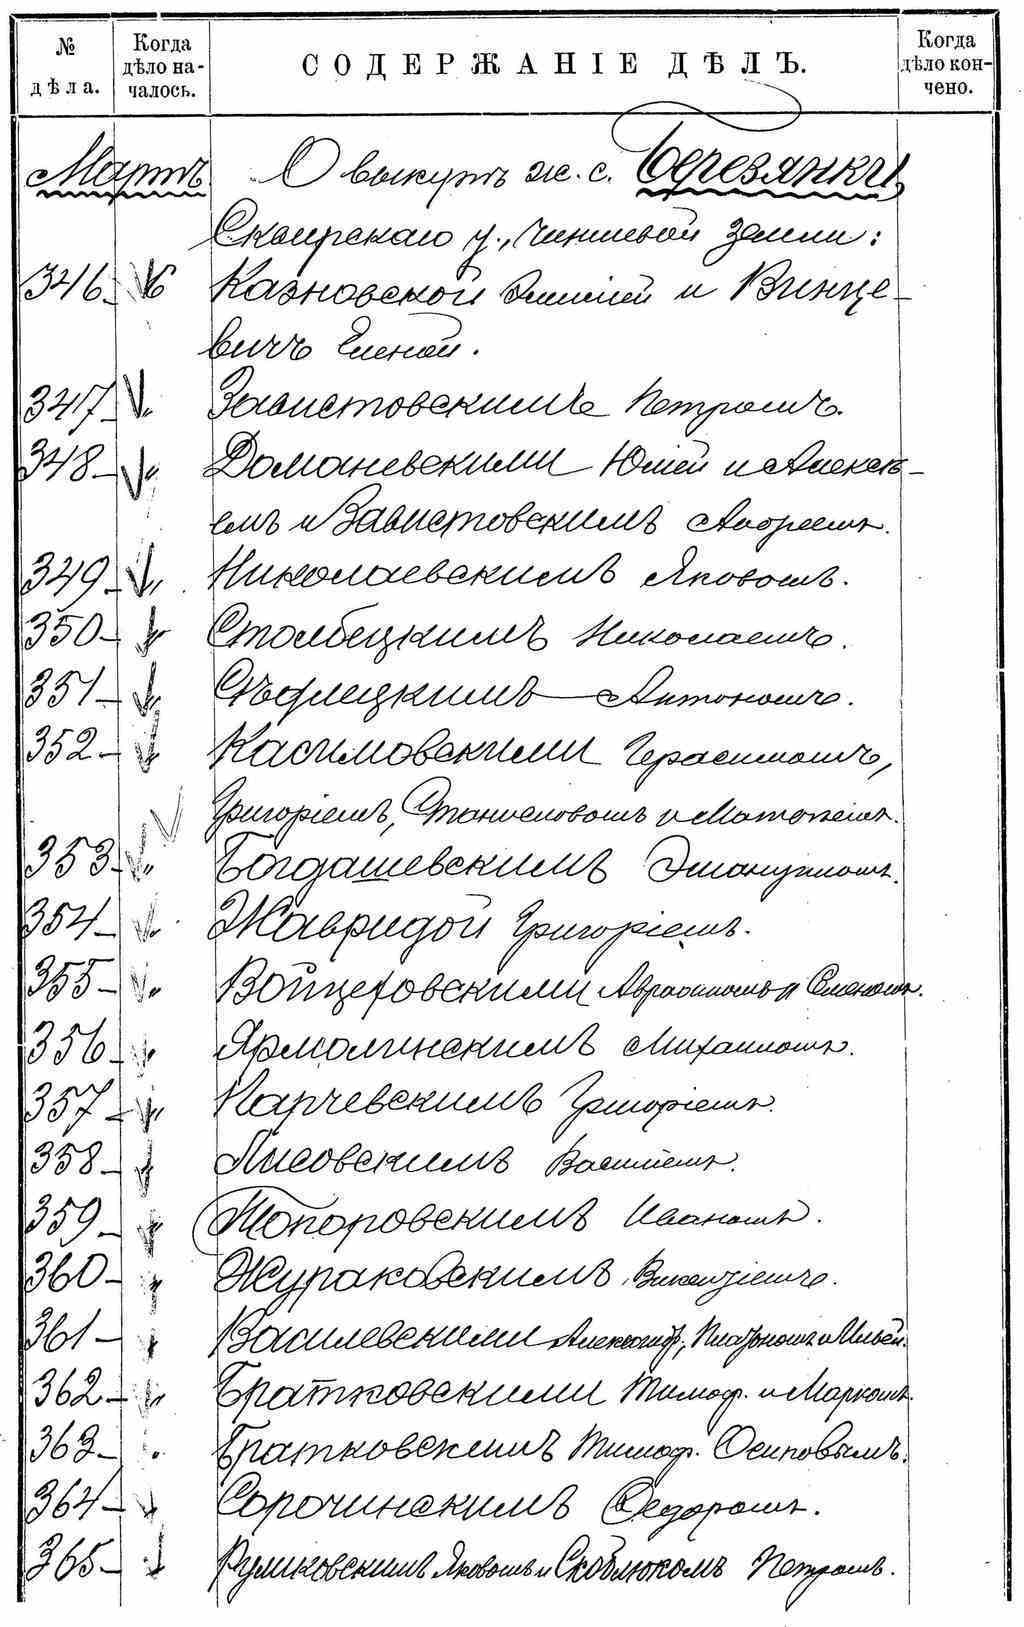 № дѣла.
Когда дѣло началось.
СОДЕРЖАНІЕ ДѢЛЪ.
Когда дѣло кончено.
Мартъ. О выкупѣ ж. с. Березянки,
Сквирскаго у., чиншевой земли:
346 6 Казновской Эмиліей и Винце-
вичъ Еленой.
347 „ Завистовскимъ Петромъ.
348 „ Доманевскими Юліей и Алексѣ-
емъ и Завистовскимъ Андреемъ.
349 „ Николаевскимъ Яковомъ.
350 „ Столбецкимъ Николаемъ.
351 „ Сѣдлецкимъ Антономъ.
352 „ Касимовскими Герасимомъ,
Григоріемъ, Станиславомъ и
353 „ Богдашевскимъ Эмануиломъ.
354 „ Жавридой Григоріемъ.
355 „ Войцеховскими и Семеномъ.
356 „ Ярмолинскимъ Михаиломъ.
357 „ Парчевскимъ Григоріемъ.
358 „ Лисовскимъ Василіемъ.
359 „ Топоровскимъ Иваномъ.
360 „ Жураковскимъ Викентіемъ.
361 „ Василевскими Александр., Платономъ и Ильей.
362 „ Братковскими Тимоф. и Маркомъ.
363 „ Братковскимъ Тимоф. Осиповымъ.
364 „ Сорочинскимъ Ѳедоромъ.
365 „ Румковскимъ Яковомъ и Скоблюкомъ Петромъ.